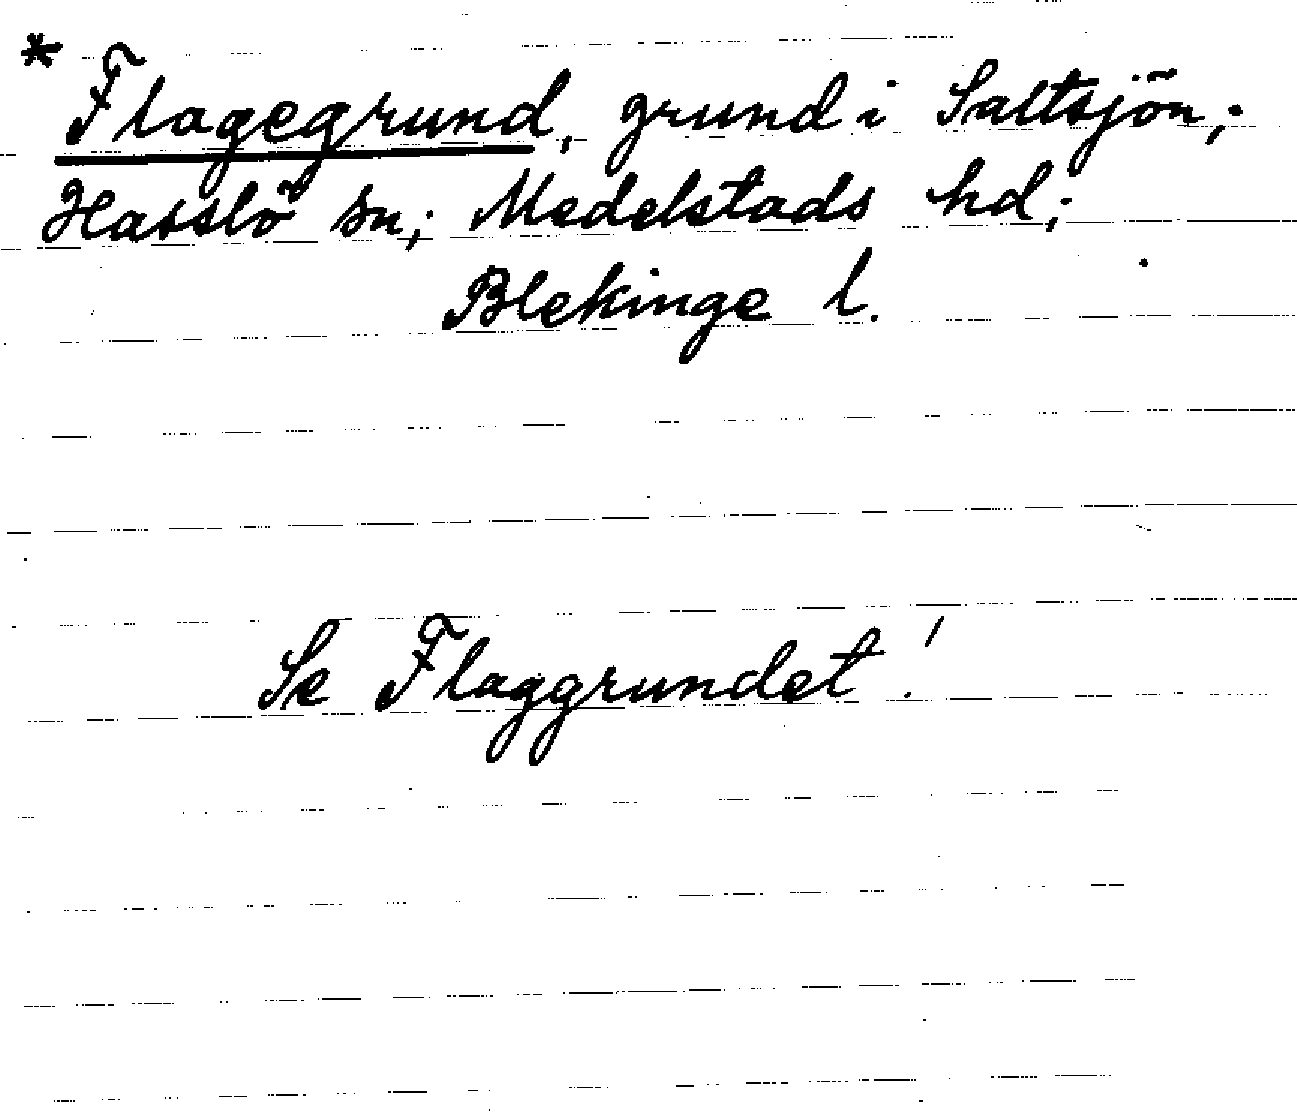 * Flagegrund, grund i Saltsjön;
Hasslö sn; Medelstads hd;
Blekinge l.
Se Flaggrundet!